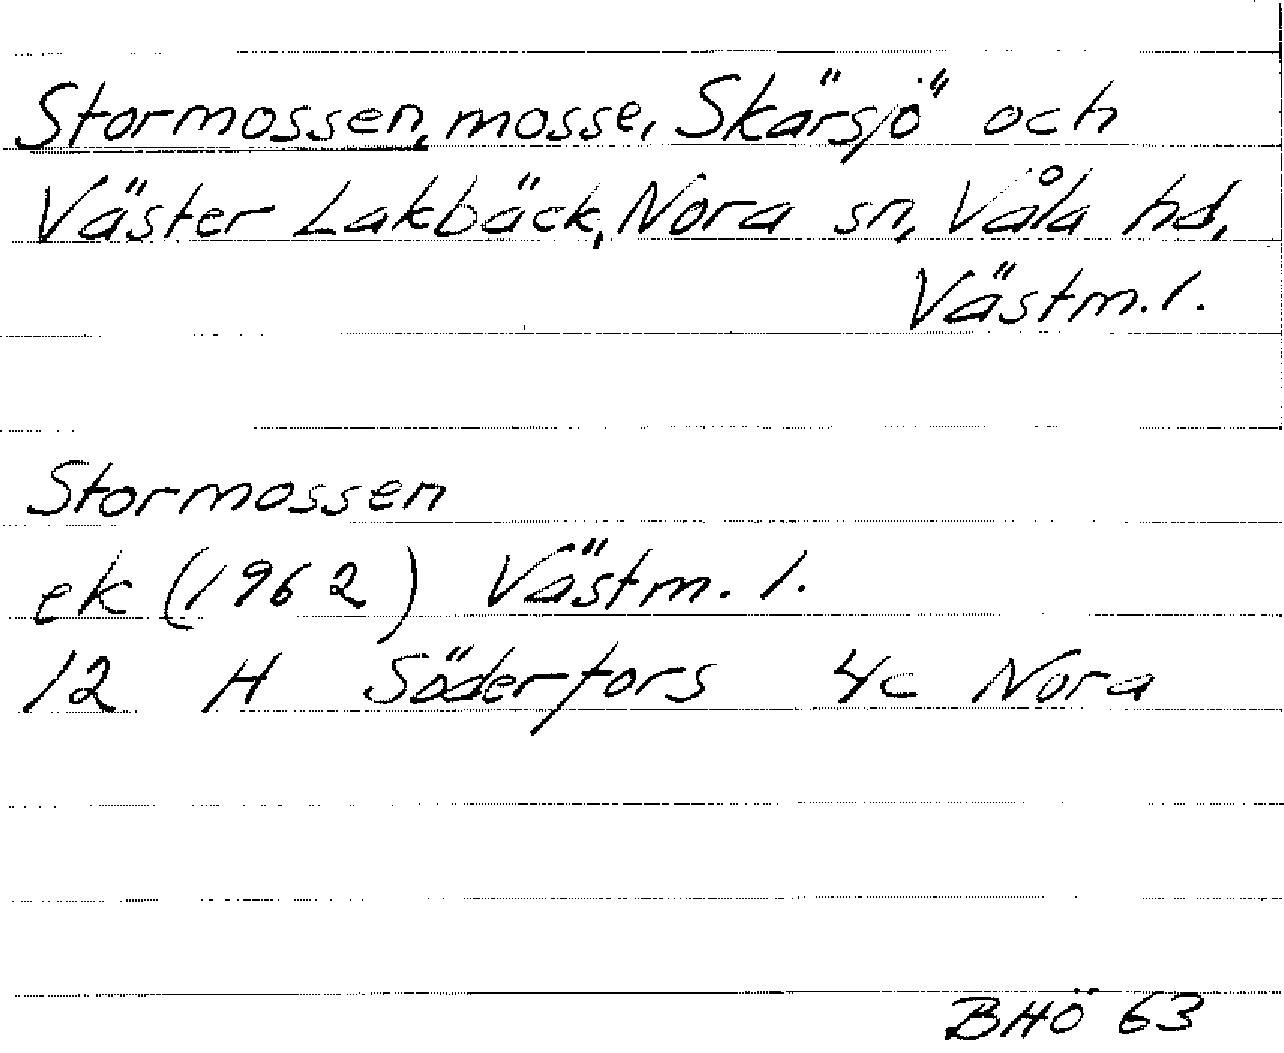 Stormossen, mosse, Skärsjö och
Väster Lakbäck, Nora sn, Våla hd,
Västm. l.
Stormossen
ek (1962) Västm. l.
12 H Söderfors 4c Nora
BHÖ 63